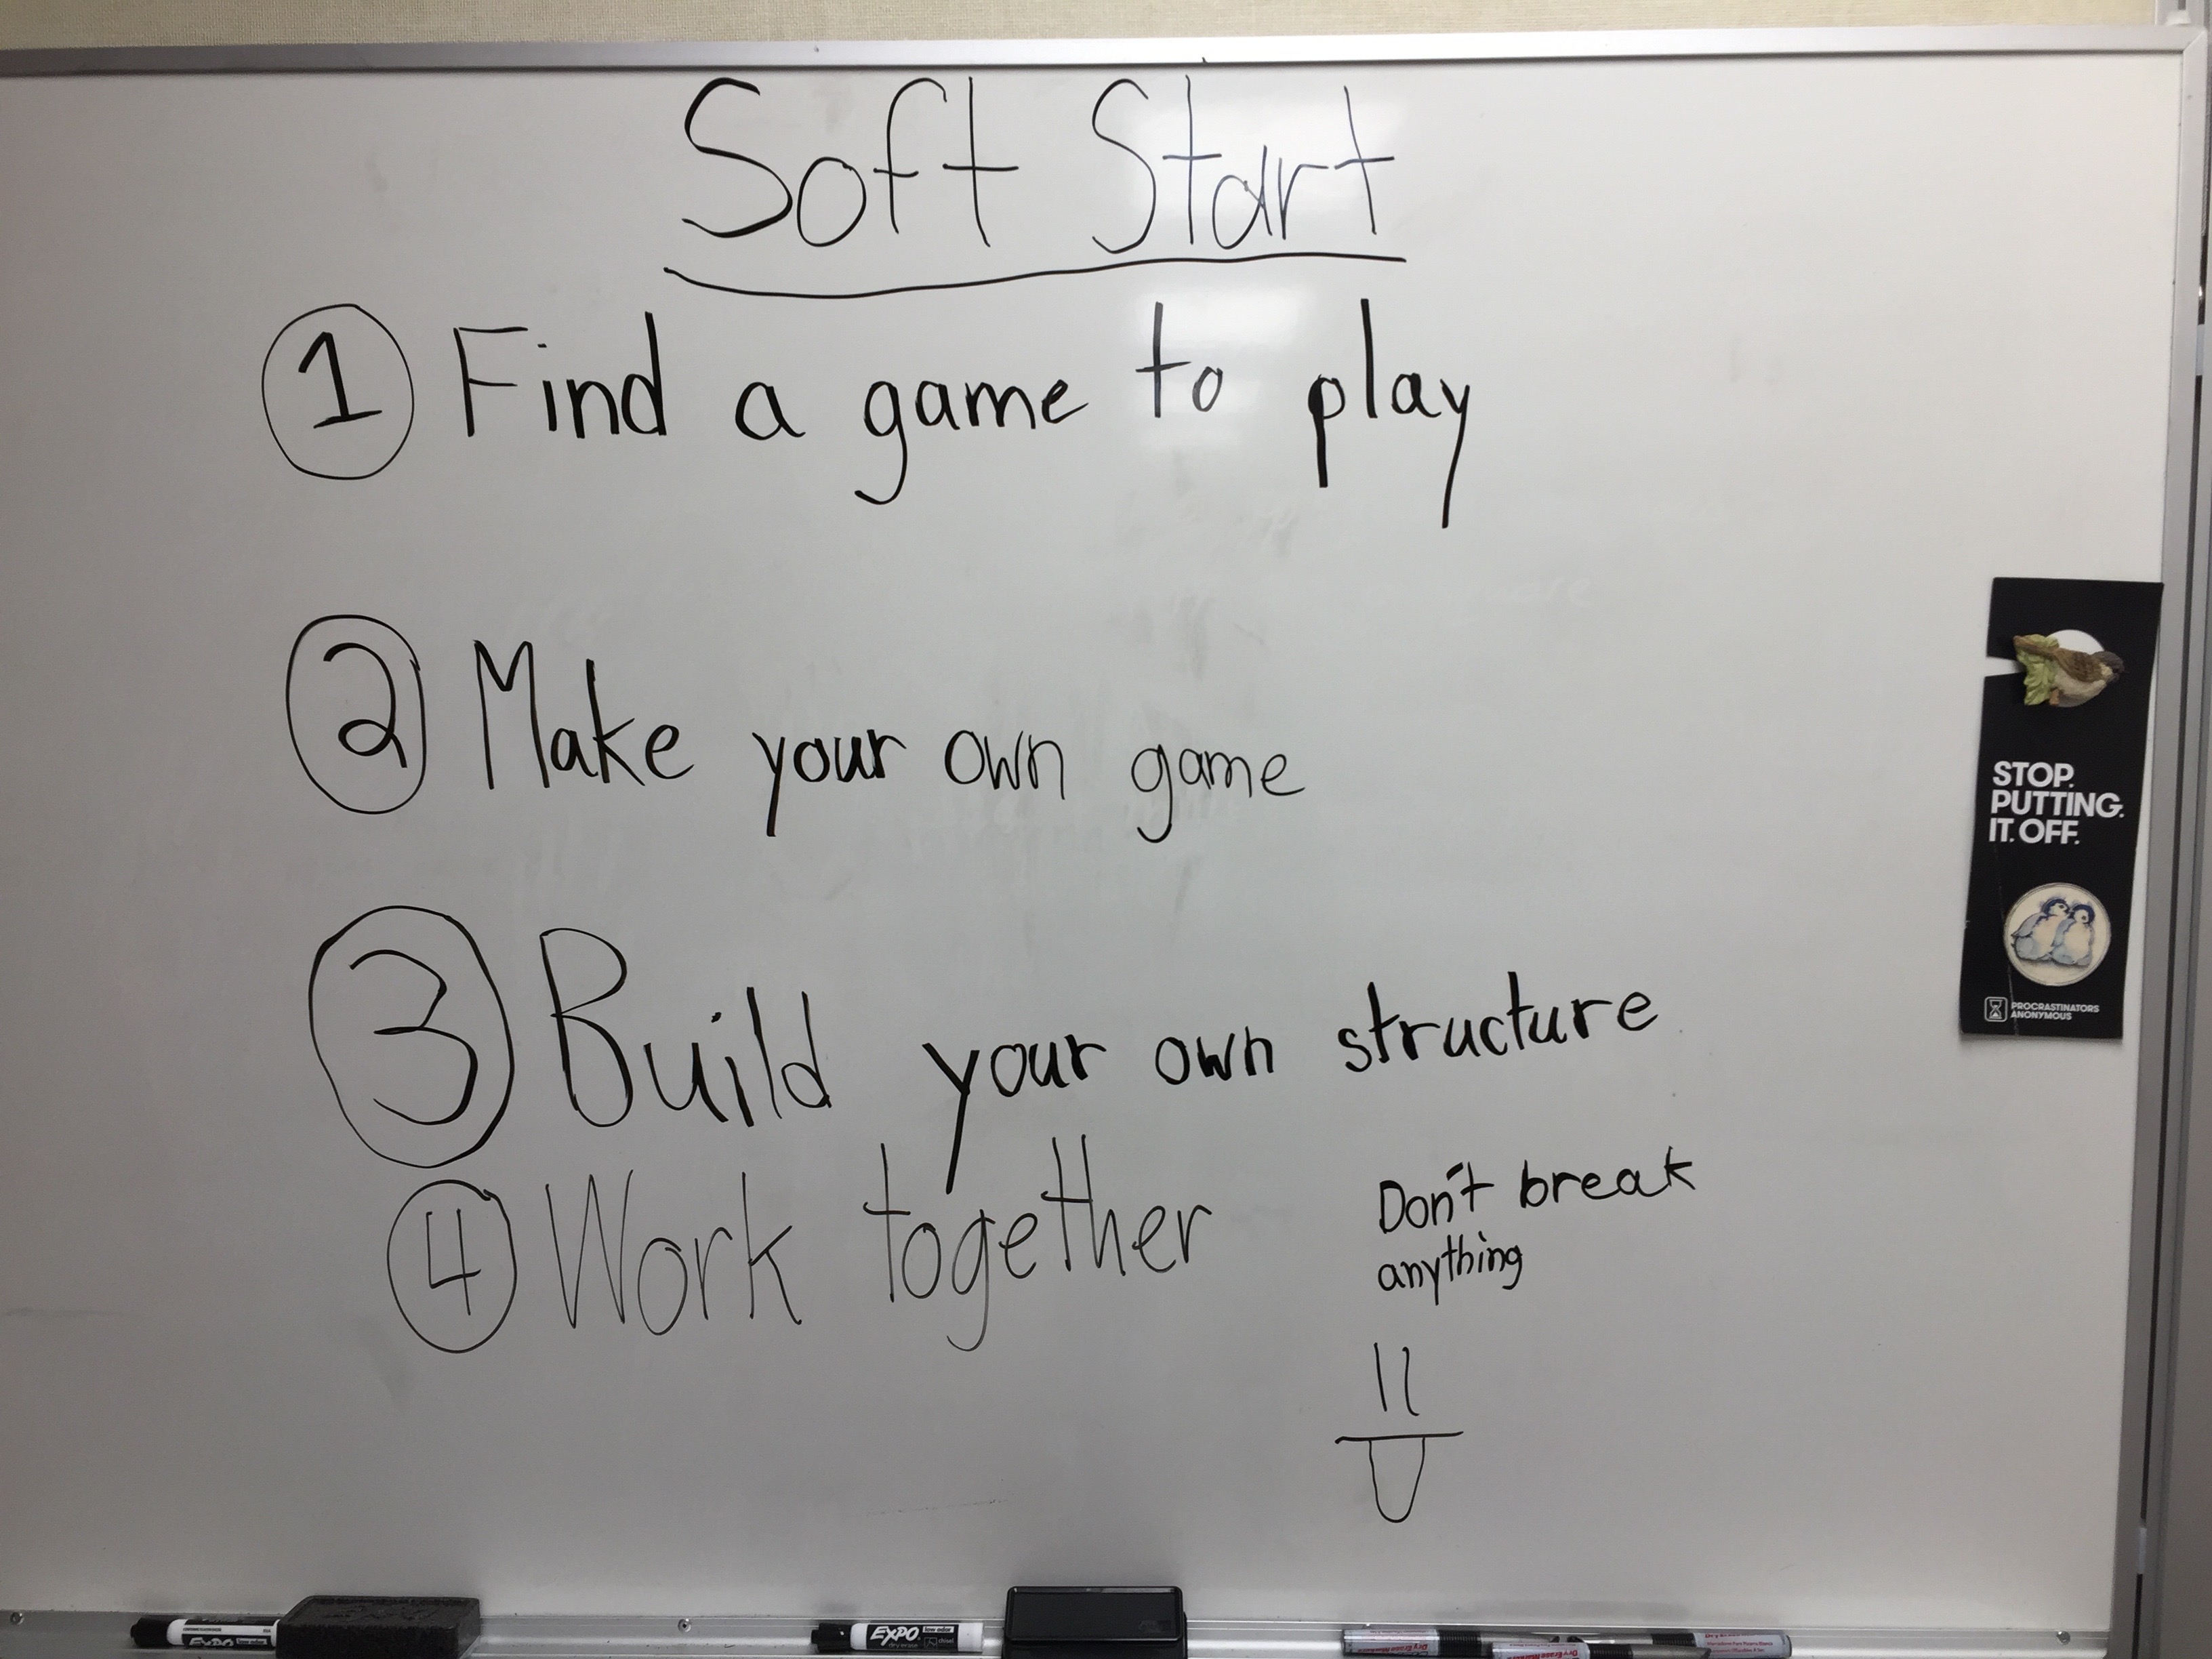 Soft Start
1 Find a game to play
2 Make your own game
3 Build your own structure
4 Work together
Don't break
anything
STOP.
PUTTING.
IT. OFF.
PROCRASTINATORS
ANONYMOUS
EXPO
EXPO low odor
dry erase chisel
Dry Erase Markers